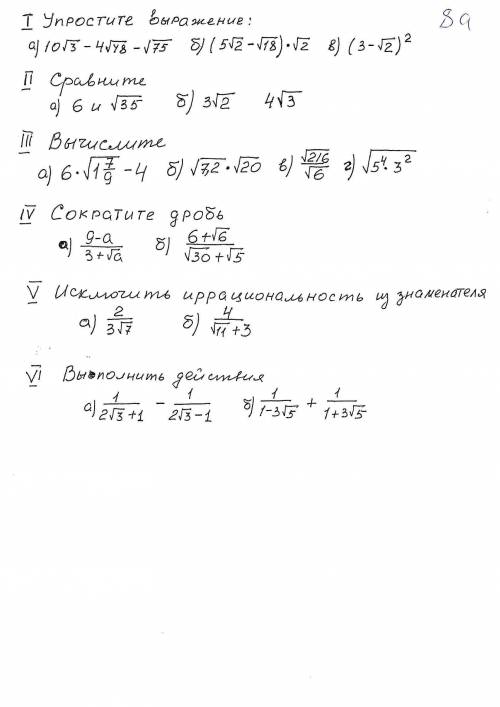 I Упростите выражение: 8а
а) 10√3 − 4√48 − √75 б) (5√2 − √18) • √2 в) (3−√2)²
II Сравните
а) 6 и √35 б) 3√2 4√3
III Вычислите
а) 6 • √1 7/9 − 4 б) √7,2 • √20 в) √216/√6 г) √5⁴•3²
IV Сократите дробь
а) 9−а/3+√а б) 6+√6/√30+√5
V Исключить иррациональность из знаменателя
а) 2/3√7 б) 4/√11+3
VI Выполнить действия
а) 1/2√3+1 − 1/2√3−1 б) 1/1−3√5 + 1/1+3√5